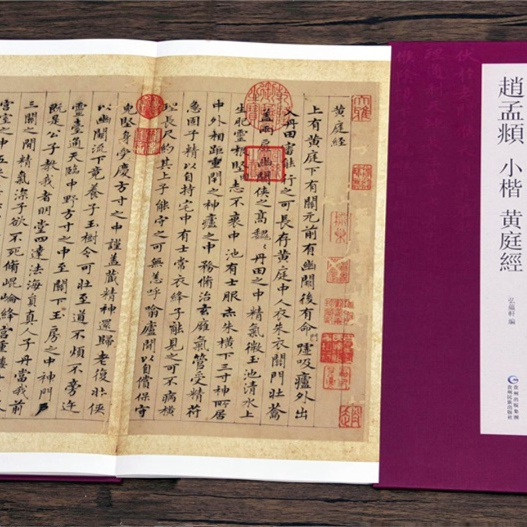 黄庭經
上有黄庭下有關元前有幽闕後有命噓吸廬外出
入丹田審能行之可長存黄庭中人衣朱衣關門壯籥
蓋兩扉幽闕俠之高巍丹田之中精氣微玉池清水上
生肥靈根堅志不衰中池有士服赤朱橫下三寸神所居
中外相距重閉之神廬之中務脩治玄雍氣管受精符
急固子精以自持宅中有士常衣絳子能見之可不病橫
以長尺約其上子能守之可無恙呼噏廬間以自償保守
堅身受慶方寸之中謹蓋藏精神還歸老復壯俠
以幽闕流下竟養子玉樹令可壯至道不煩不旁迕
靈臺通天臨中野方寸之中至關下玉房之中神門戶
既是公子教我者明堂四達法海員真人子丹當我前
三關之間精氣深子欲不死脩崐崘絳宮重樓
宮室之中五采
趙孟頫 小楷 黄庭經
弘蘊軒 编
贵州出版集团
贵州民族出版社